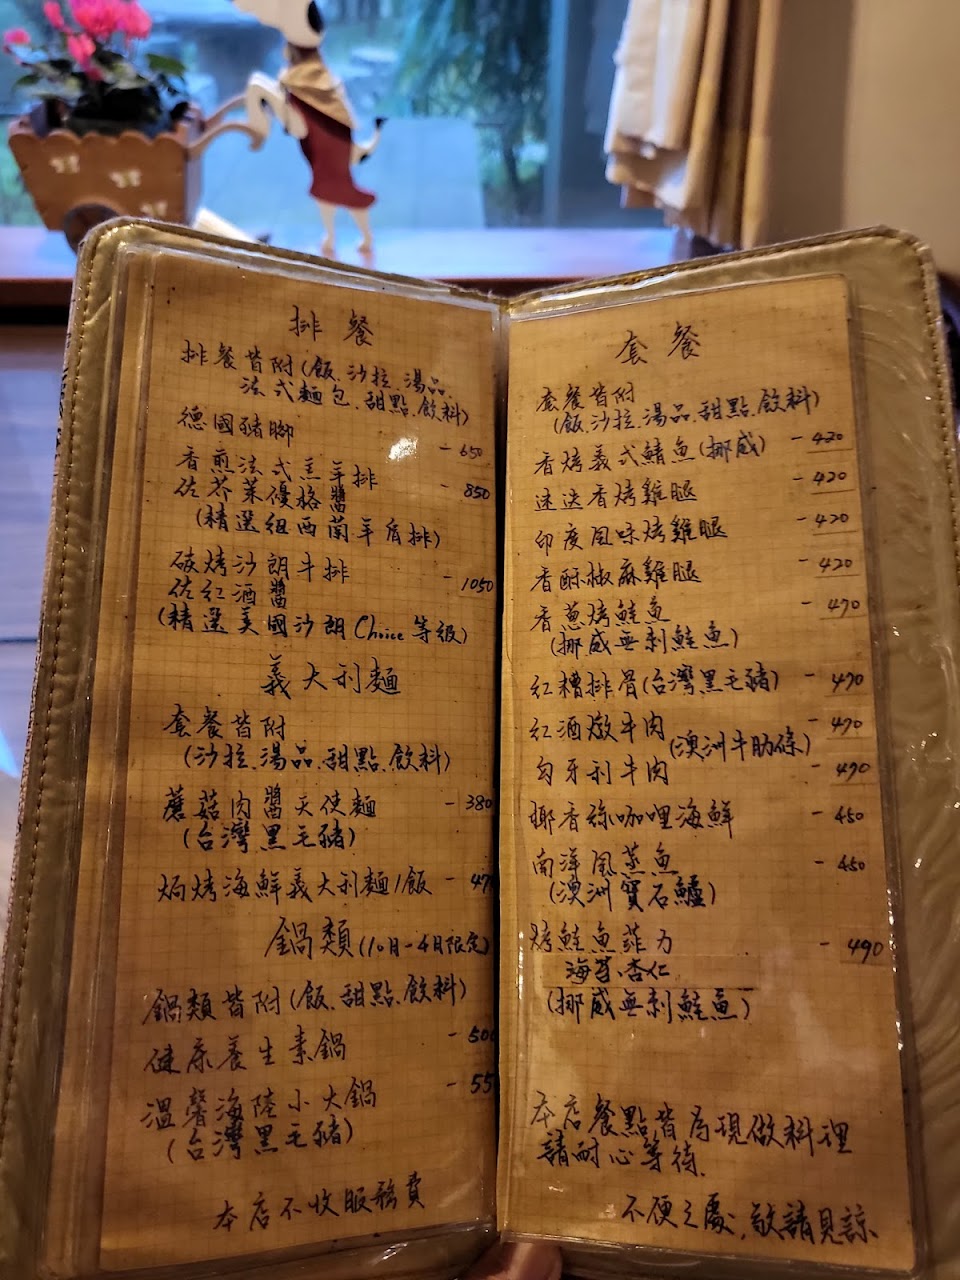 排餐
排餐皆附(飯.沙拉.湯品.
法式麵包.甜點.飲料)
德國豬腳 - 650
香煎法式羔羊排 - 850
佐芥茉優格醬
(精選紐西蘭羊肩排)
碳烤沙朗牛排 - 1050
佐紅酒醬
(精選美國沙朗Choice等級)
義大利麵
套餐皆附
(沙拉.湯品.甜點.飲料)
蘑菇肉醬天使麵 - 380
(台灣黑毛豬)
焗烤海鮮義大利麵/飯 - 47
鍋類(10月-4月限定)
鍋類皆附(飯.甜點.飲料)
健康養生素鍋 - 500
溫馨海陸小火鍋 - 55
(台灣黑毛豬)
本店不收服務費
套餐
套餐皆附
(飯.沙拉.湯品.甜點.飲料)
香烤義式鯖魚(挪威) - 420
迷迭香烤雞腿 - 420
印度風味烤雞腿 - 420
香酥椒麻雞腿 - 420
香蔥烤鮭魚 - 470
(挪威無刺鮭魚)
紅糟排骨(台灣黑毛豬) - 470
紅酒燉牛肉 - 470
(澳洲牛肋條)
匈牙利牛肉 - 470
椰香綠咖哩海鮮 - 450
南洋風蒸魚 - 450
(澳洲寶石鱸)
烤鮭魚菲力 - 490
海苔.杏仁
(挪威無刺鮭魚)
本店餐點皆為現做料理
請耐心等待.
不便之處,敬請見諒.